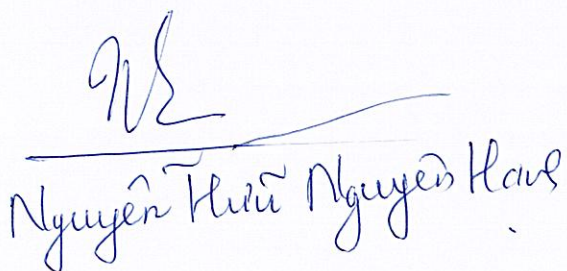 Nguyễn Hữu Nguyên Hang